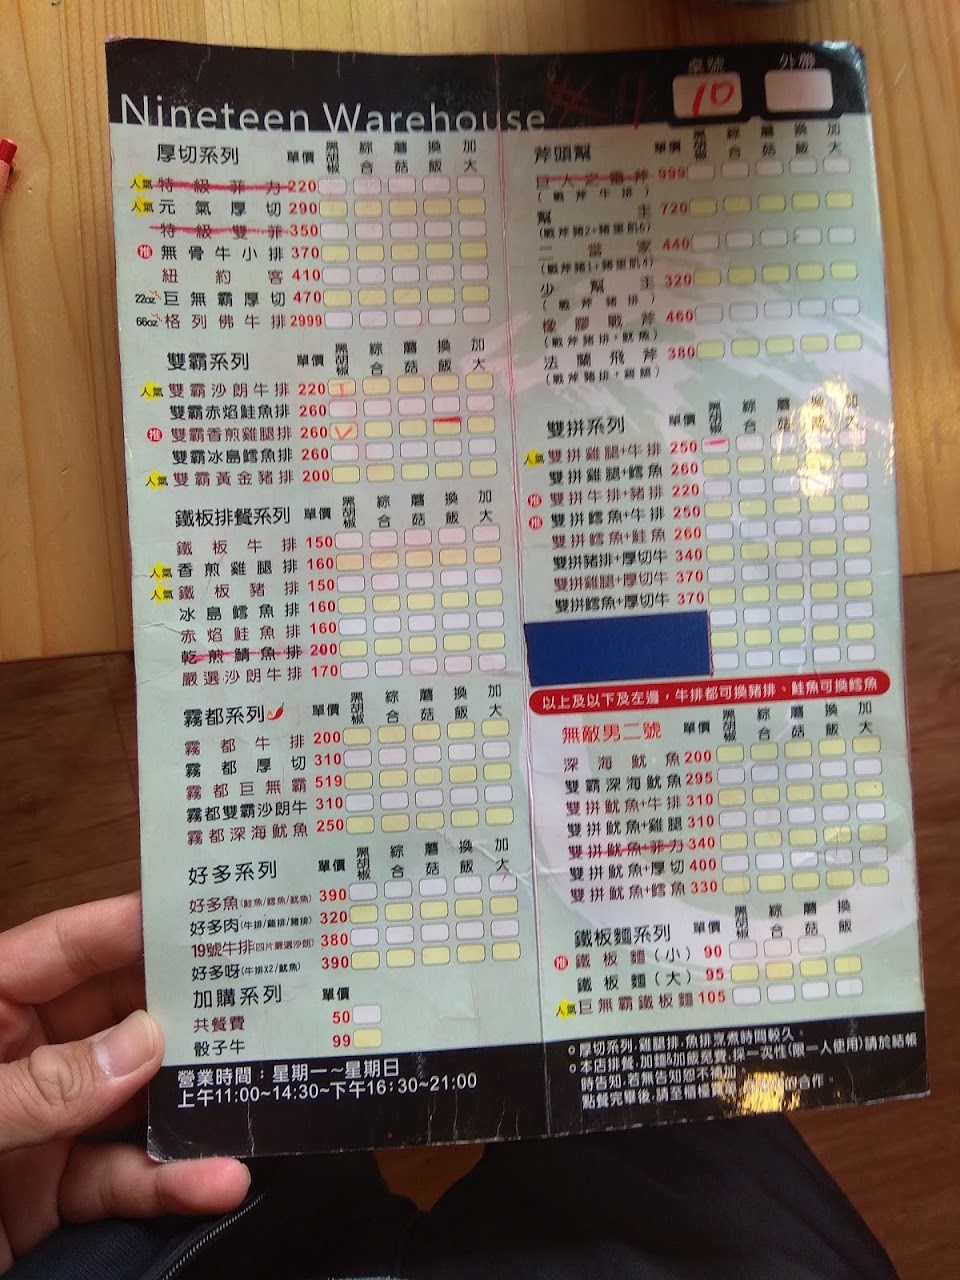 Nineteen Warehouse
桌號
外帶
10
厚切系列 單價 黑胡椒 綜合 蘑菇 換飯 加大
人氣 特級菲力 220
人氣 元氣厚切 290
特級雙菲 350
推 無骨牛小排 370
紐約客 410
22oz 巨無霸厚切 470
66oz 格列佛牛排 2999
雙霸系列 單價 黑胡椒 綜合 蘑菇 換飯 加大
人氣 雙霸沙朗牛排 220
雙霸赤焰鮭魚排 260
推 雙霸香煎雞腿排 260
雙霸冰島鱈魚排 260
人氣 雙霸黃金豬排 200
鐵板排餐系列 單價 黑胡椒 綜合 蘑菇 換飯 加大
鐵板牛排 150
人氣 香煎雞腿排 160
人氣 鐵板豬排 150
冰島鱈魚排 160
赤焰鮭魚排 160
乾煎鯖魚排 200
嚴選沙朗牛排 170
霧都系列 單價 黑胡椒 綜合 蘑菇 換飯 加大
霧都牛排 200
霧都厚切 310
霧都巨無霸 519
霧都雙霸沙朗牛 310
霧都深海魷魚 250
好多系列 單價 黑胡椒 綜合 蘑菇 換飯 加大
好多魚(鮭魚/鱈魚/魷魚) 390
好多肉(牛排/雞排/豬排) 320
19號牛排(四片嚴選沙朗) 380
好多呀(牛排X2/魷魚) 390
加購系列 單價
共餐費 50
骰子牛 99
營業時間：星期一~星期日
上午11:00~14:30~下午16:30~21:00
斧頭幫 單價 黑胡椒 綜合 蘑菇 換飯 加大
999
(戰斧牛排)
幫主 720
(戰斧豬2+豬里肌6)
二當家 440
(戰斧豬1+豬里肌4)
少幫主 320
(戰斧豬排)
橡膠戰斧 460
(戰斧豬排+魷魚)
法蘭飛斧 380
(戰斧豬排+雞腿)
雙拼系列 單價 黑胡椒 綜合 蘑菇 換飯 加大
人氣 雙拼雞腿+牛排 250
雙拼雞腿+鱈魚 260
推 雙拼牛排+豬排 220
推 雙拼鱈魚+牛排 250
雙拼鱈魚+鮭魚 260
雙拼豬排+厚切牛 340
雙拼雞腿+厚切牛 370
雙拼鱈魚+厚切牛 370
以上及以下及左邊，牛排都可換豬排、鮭魚可換鱈魚
無敵男二號 單價 黑胡椒 綜合 蘑菇 換飯 加大
深海魷魚 200
雙霸深海魷魚 295
雙拼魷魚+牛排 310
雙拼魷魚+雞腿 310
雙拼魷魚+菲力 340
雙拼魷魚+厚切 400
雙拼魷魚+鱈魚 330
鐵板麵系列 單價 黑胡椒 綜合 蘑菇 換飯
推 鐵板麵(小) 90
鐵板麵(大) 95
人氣 巨無霸鐵板麵 105
厚切系列,雞腿排,魚排烹煮時間較久。
本店排餐,加麵&加飯免費,採一次性(限一人使用)請於結帳
時告知,若無告知恕不補加
點餐完畢後,請至櫃檯 的合作。